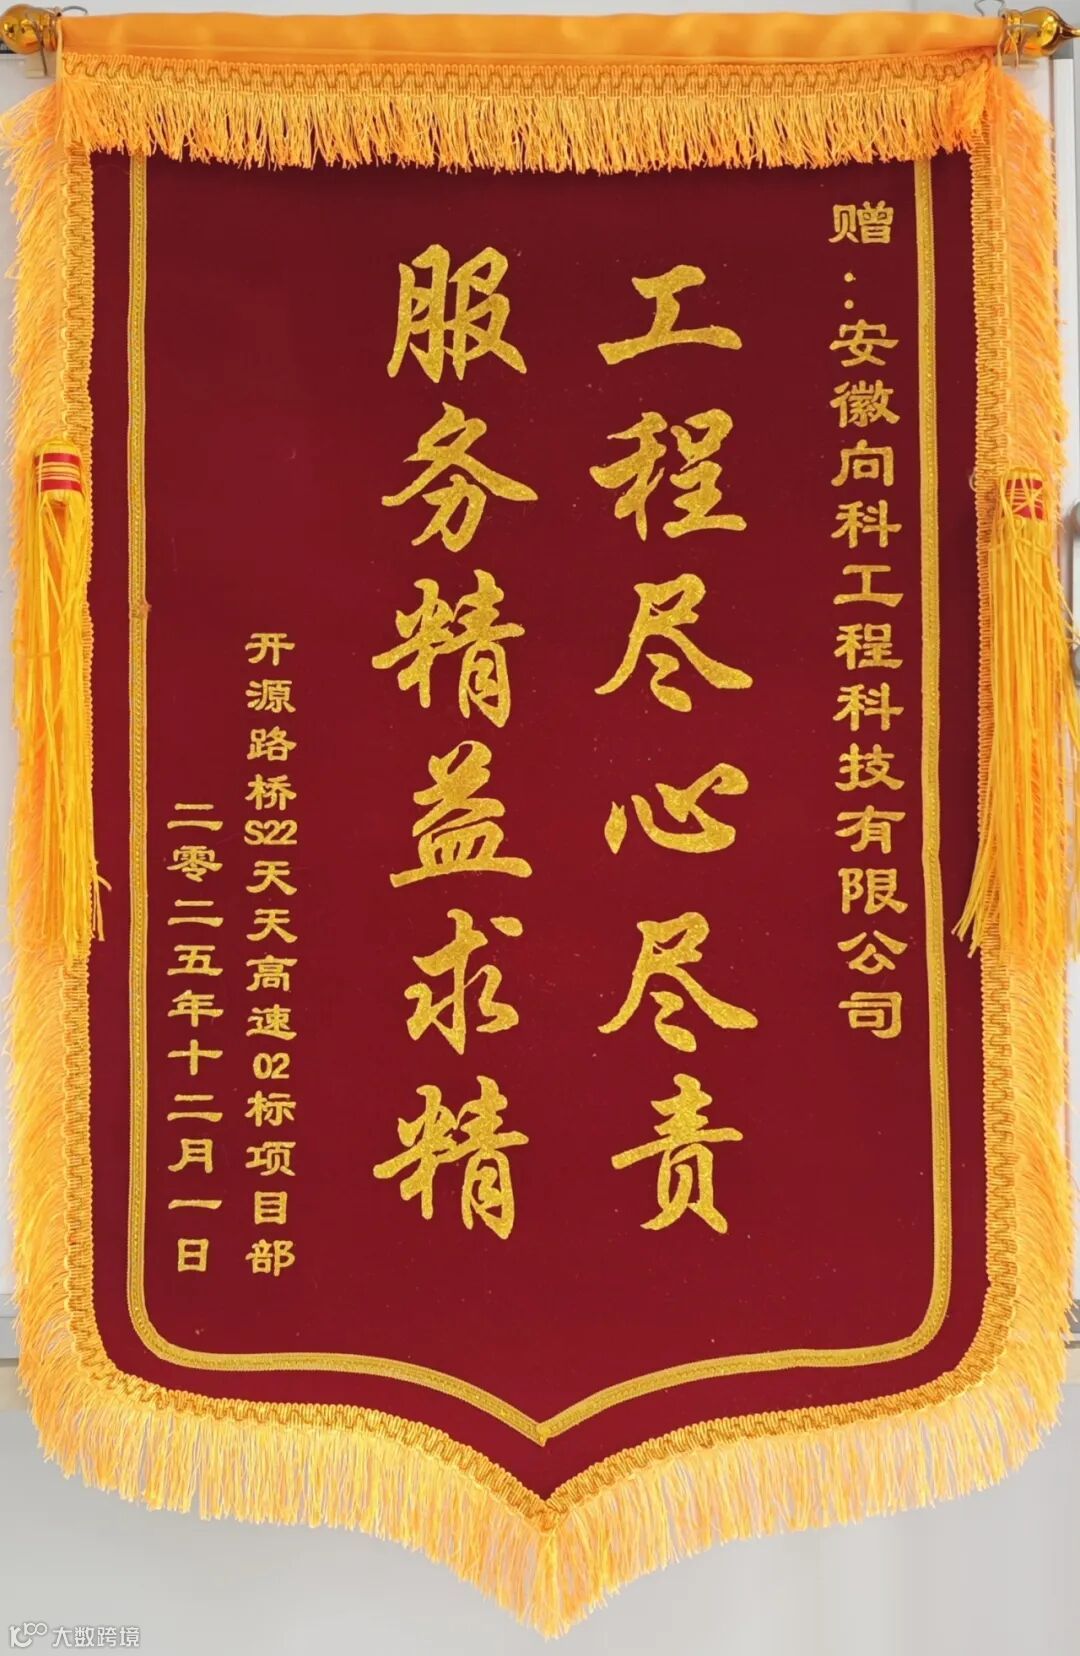 赠：安徽向科工程科技有限公司
工程尽心尽责
服务精益求精
开源路桥S22天天高速02标项目部
二零二五年十二月一日
大数跨境